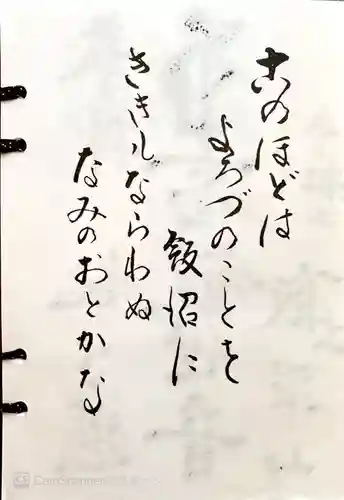 このほどは
よろづのことを
飯沼に
きき ならわぬ
なみのおとかな
CS CamScanner